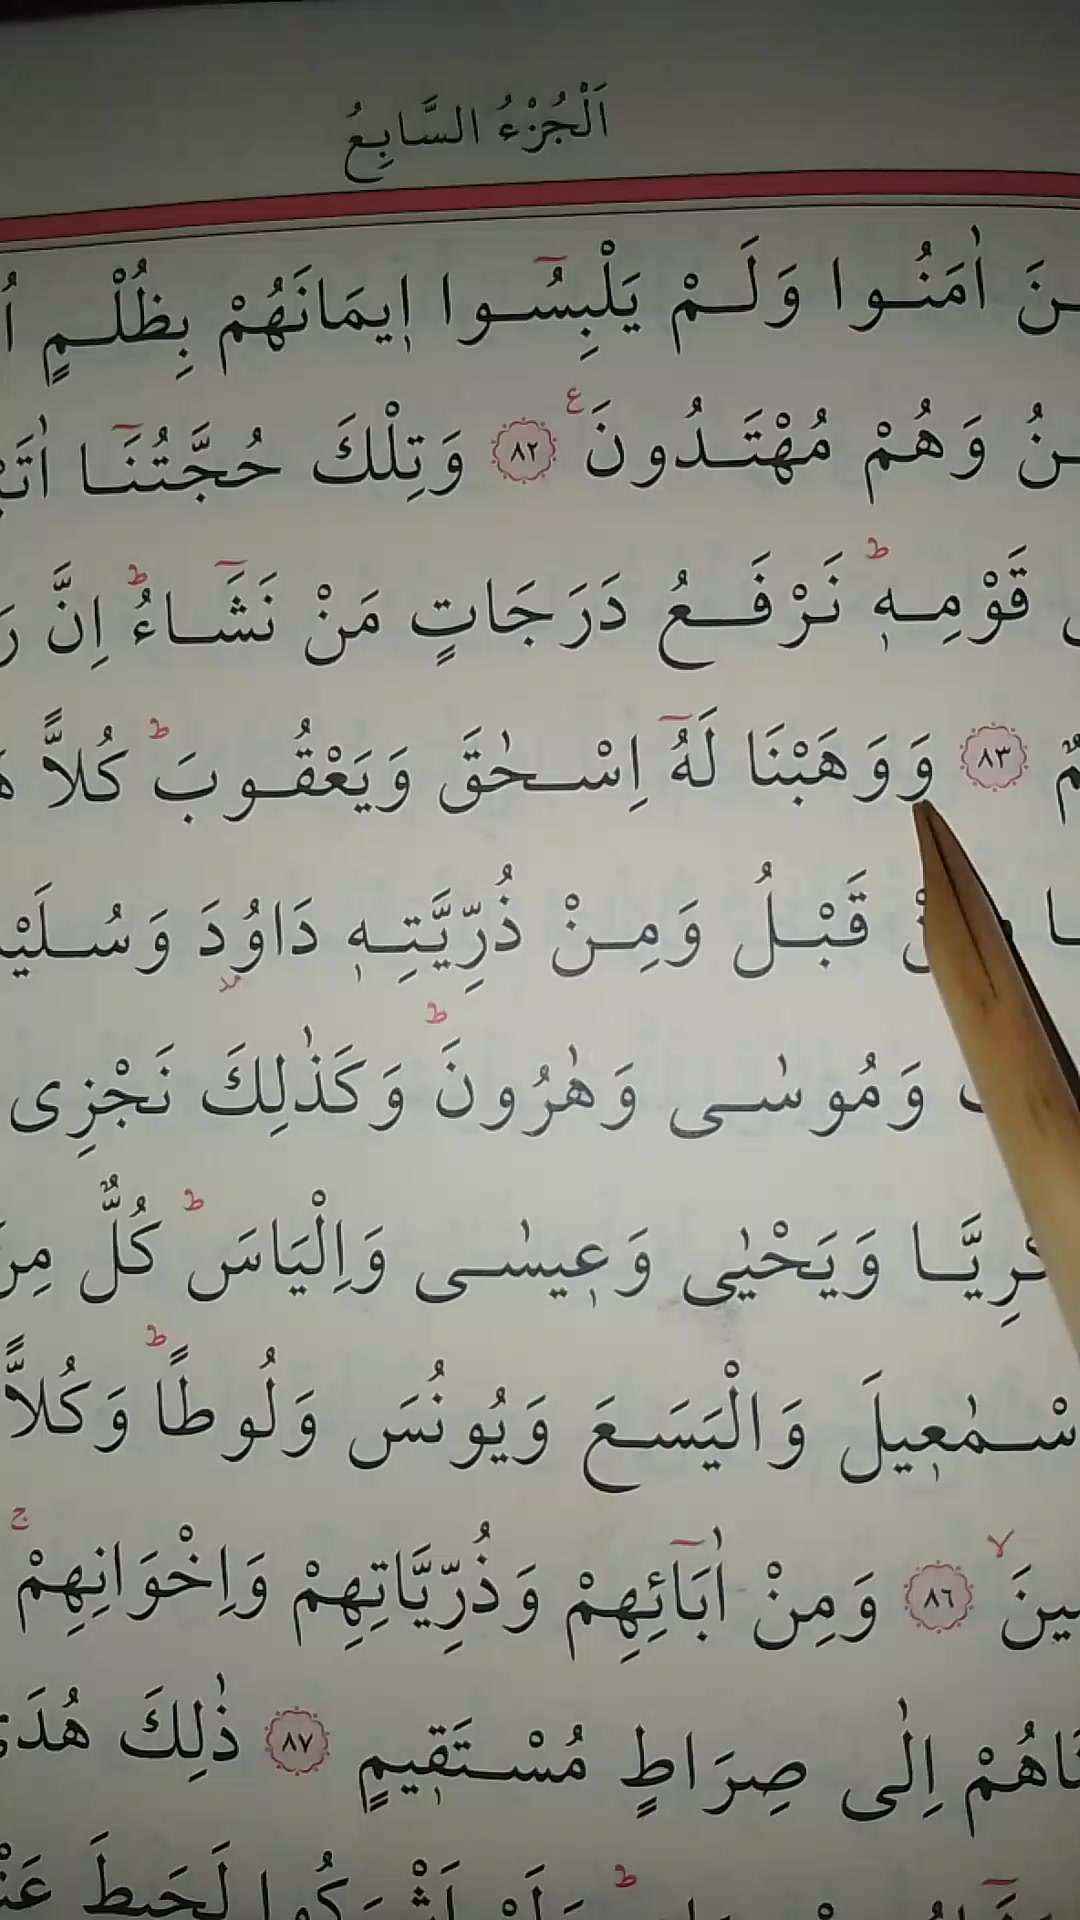 اَلْجُزْءُ السَّابِعُ
اٰمَنُوا وَلَمْ يَلْبِسُٓوا اٖيمَانَهُمْ بِظُلْمٍ
وَهُمْ مُهْتَدُونَ ۧ ﴿٨٢﴾ وَتِلْكَ حُجَّتُنَٓا
قَوْمِهٖۜ نَرْفَعُ دَرَجَاتٍ مَنْ نَشَٓاءُۜ اِنَّ
﴿٨٣﴾ وَوَهَبْنَا لَهُٓ اِسْحٰقَ وَيَعْقُوبَۜ كُلاًّ
قَبْلُ وَمِنْ ذُرِّيَّتِهٖ دَاوُدَ
وَمُوسٰى وَهٰرُونَۜ وَكَذٰلِكَ نَجْزِى
وَيَحْيٰى وَعٖيسٰى وَاِلْيَاسَۜ كُلٌّ
وَالْيَسَعَ وَيُونُسَ وَلُوطًاۜ وَكُلاًّ
﴿٨٦﴾ وَمِنْ اٰبَٓائِهِمْ وَذُرِّيَّاتِهِمْ وَاِخْوَانِهِمْۚ
اِلٰى صِرَاطٍ مُسْتَقٖيمٍ ﴿٨٧﴾ ذٰلِكَ
لَحَبِطَ